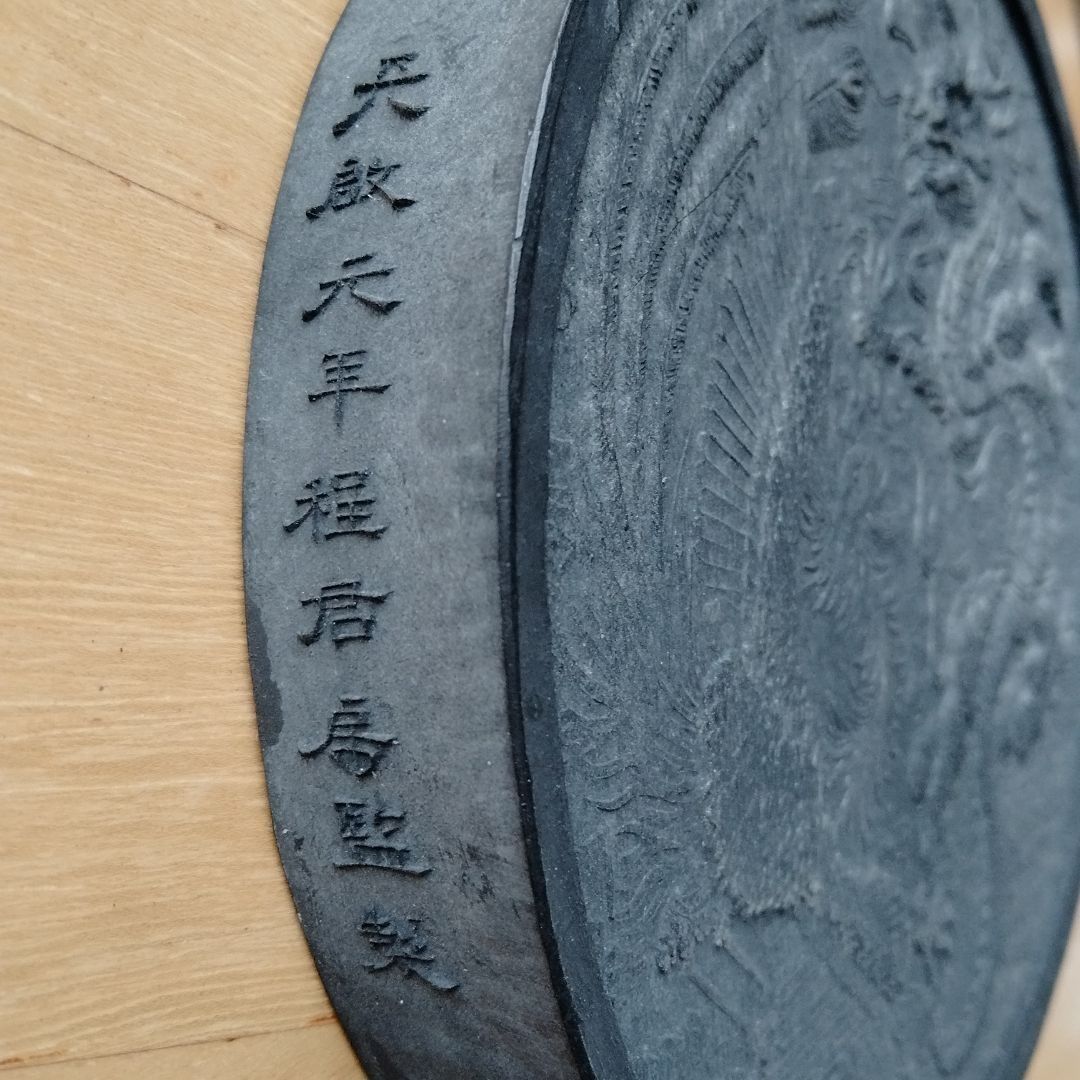 天啟元年程君房監製